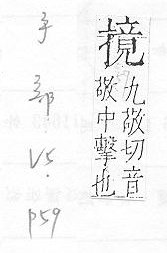 手
部
V5.
P59
摬
九敬切音
敬中擊也